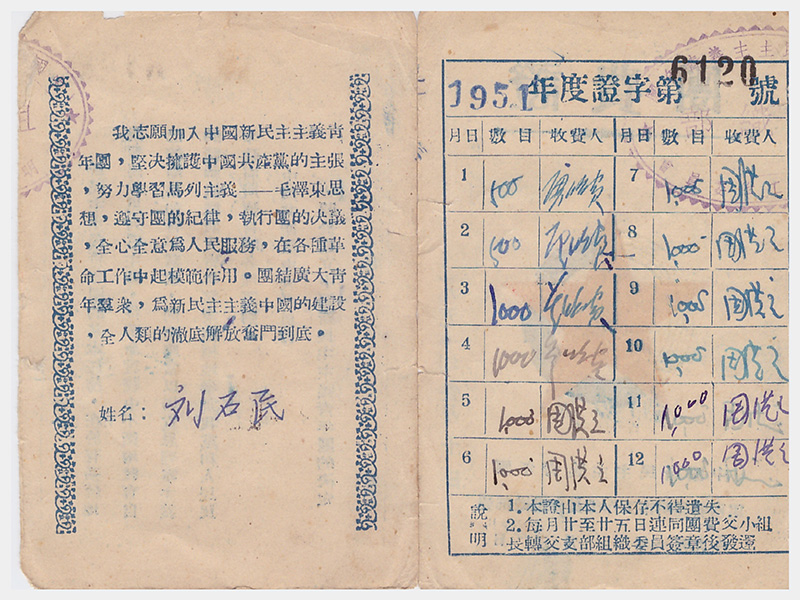 我志願加入中國新民主主義青
年團，堅决擁護中國共產黨的主張
，努力學習馬列主義——毛澤東思
想，遵守團的紀律，執行團的决議
，全心全意爲人民服務，在各種革
命工作中起模範作用。團結廣大青
年羣衆，爲新民主主義中國的建設
，全人類的澈底解放奮鬥到底。
姓名：刘石民
1951年度證字第6120號
月日 數目 收費人 月日 數目 收費人
1 500 7 1,000
2 500 8 1,000
3 1000 9 1,000
4 1000 10 1,000
5 1,000 11 1,000
6 1,000 12 1,000
說明
1.本證由本人保存不得遺失
2.每月廿至廿五日連同團費交小組
長轉交支部組織委員簽章後發還